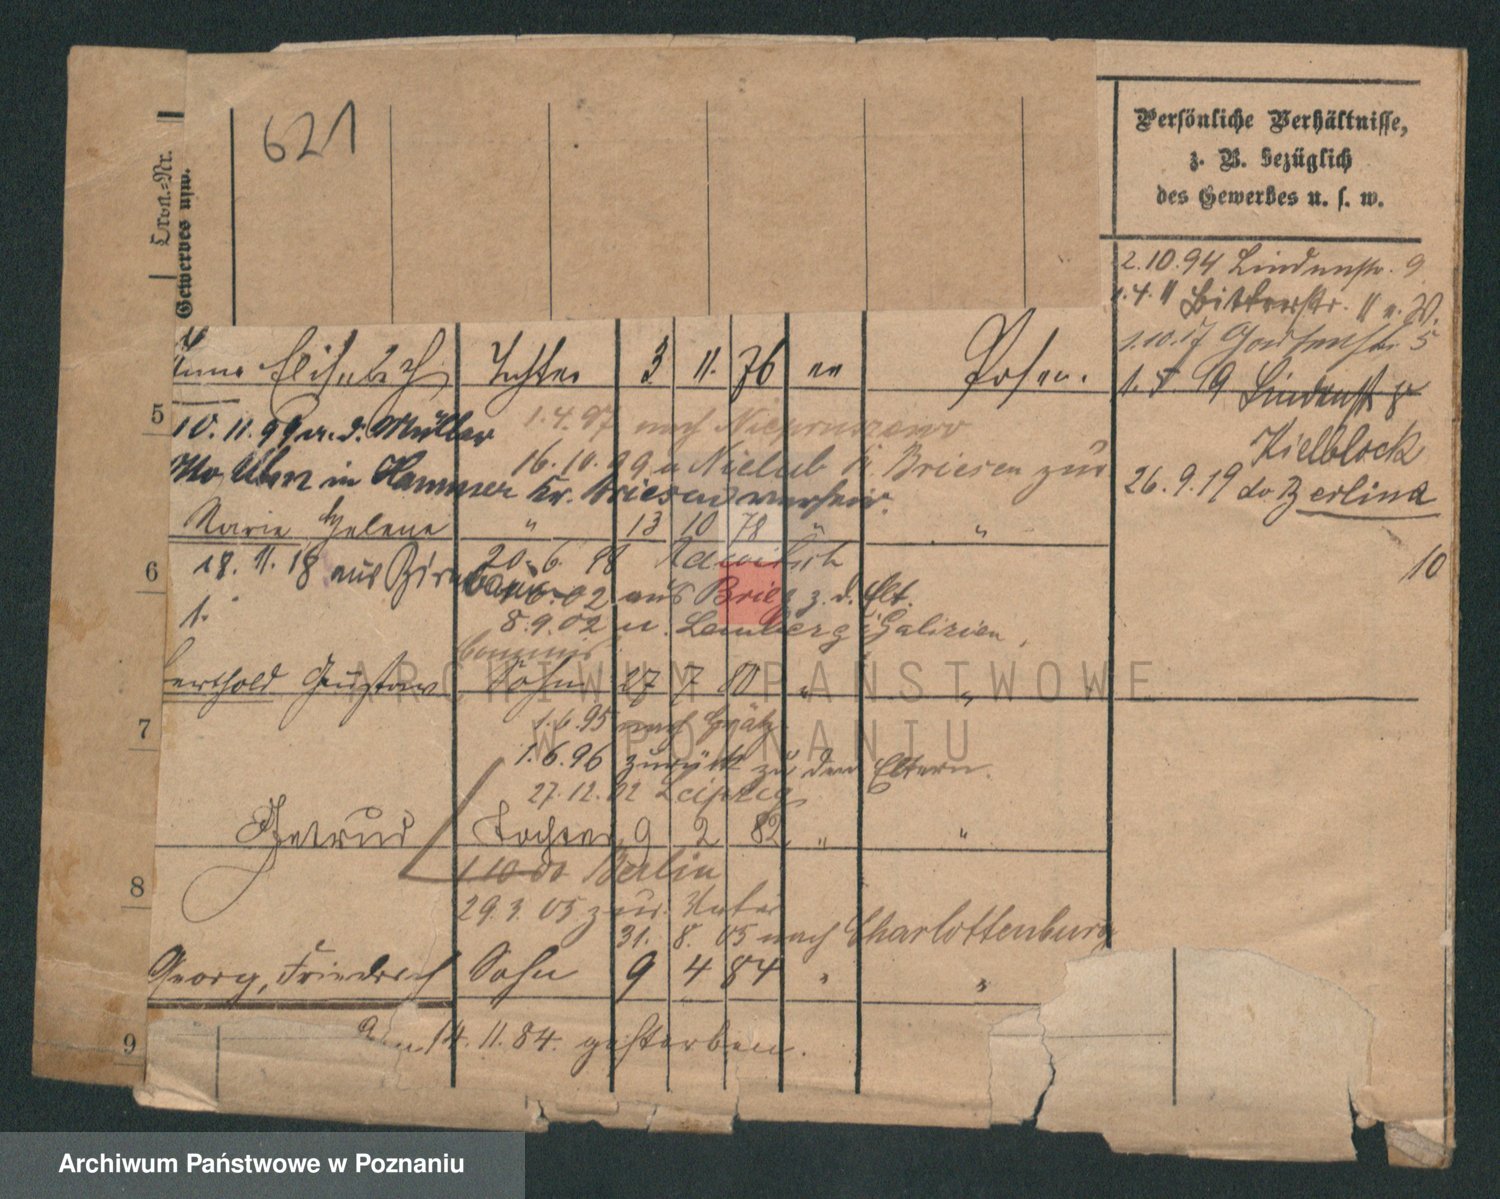 621
Persönliche Verhältnisse,
z. B. bezüglich
des Gewerbes u. s. w.
Gewerbes usw.
2.10.94 Lindenstr. 9
1.4. 11 Ritterstr. 11 a. W.
1.10.17 Gartenstr. 5
1. 5 19 Lindenstr. 8
Kielblock
26.9.19 do Berlin
10
Anna Elisabeth Tochter 3 11. 76 ev Posen.
5
10. 11. 99 a. d. Müller
1.4.97 nach
16.10.99 n Nielub Kr. Briesen zur
Otto in Hammer Kr. Briesen
Marie Helene " 13 10 78 " "
6
18. 11. 18 aus Birnbaum
20.6. 98 Rawitsch
02 aus Brieg z. d. Elt.
1.
8.9.02 n. Lemberg i Galizien,
Berthold Gustav Sohn 27 7 80 " "
ARCHIWUM PAŃSTWOWE
W POZNANIU
7
1.6.95 nach Grätz
1.6.96 zurück zu den Eltern.
27.12.02 Leipzig
Gertrud Tochter 9 2 82 " "
8
1.10.00 Berlin
29.3.05 zur. Vater
31. 8. 05 nach Charlottenburg
Georg, Friedrich Sohn 9 4 84 " "
9
14.11.84. gestorben.
Archiwum Państwowe w Poznaniu